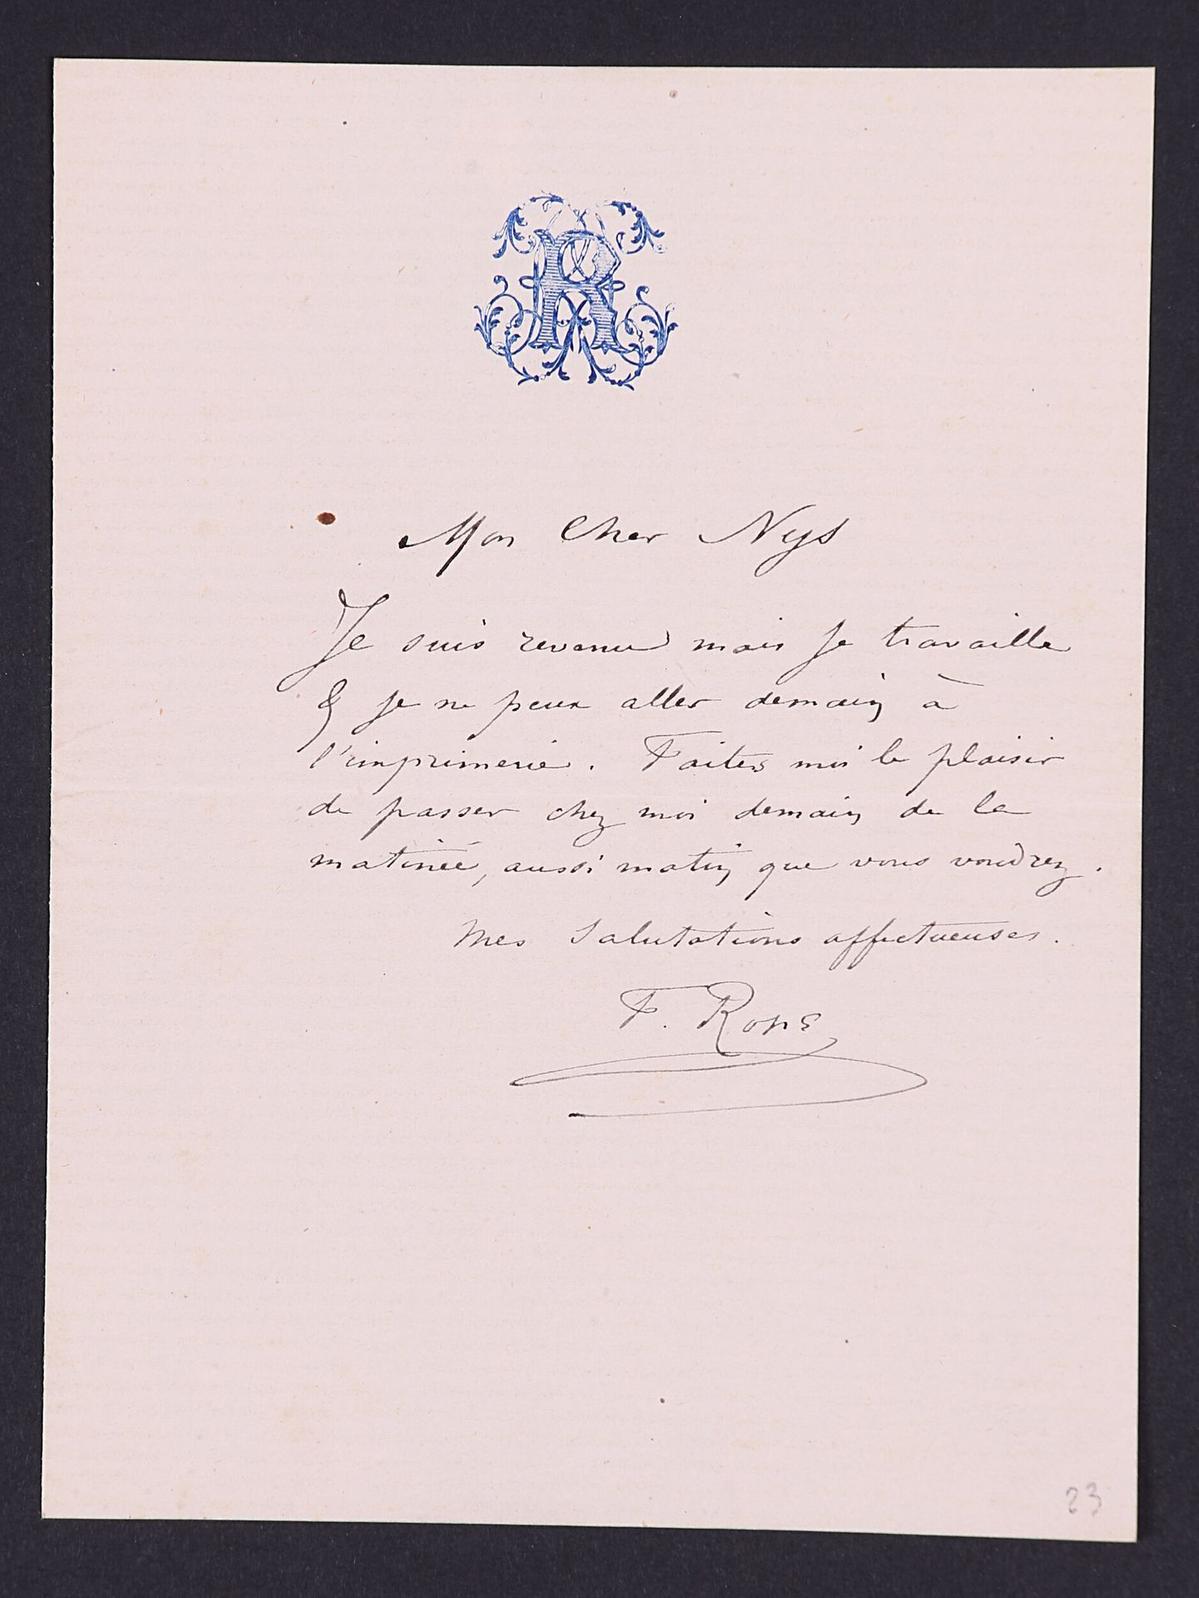 R
Mon Cher Nys
Je suis revenu mais je travaille
& je ne peux aller demain à
l'imprimerie. Faites moi le plaisir
de passer chez moi demain de la
matinée, aussi matin que vous voudrez.
Mes Salutations affectueuses.
F. Rops
23